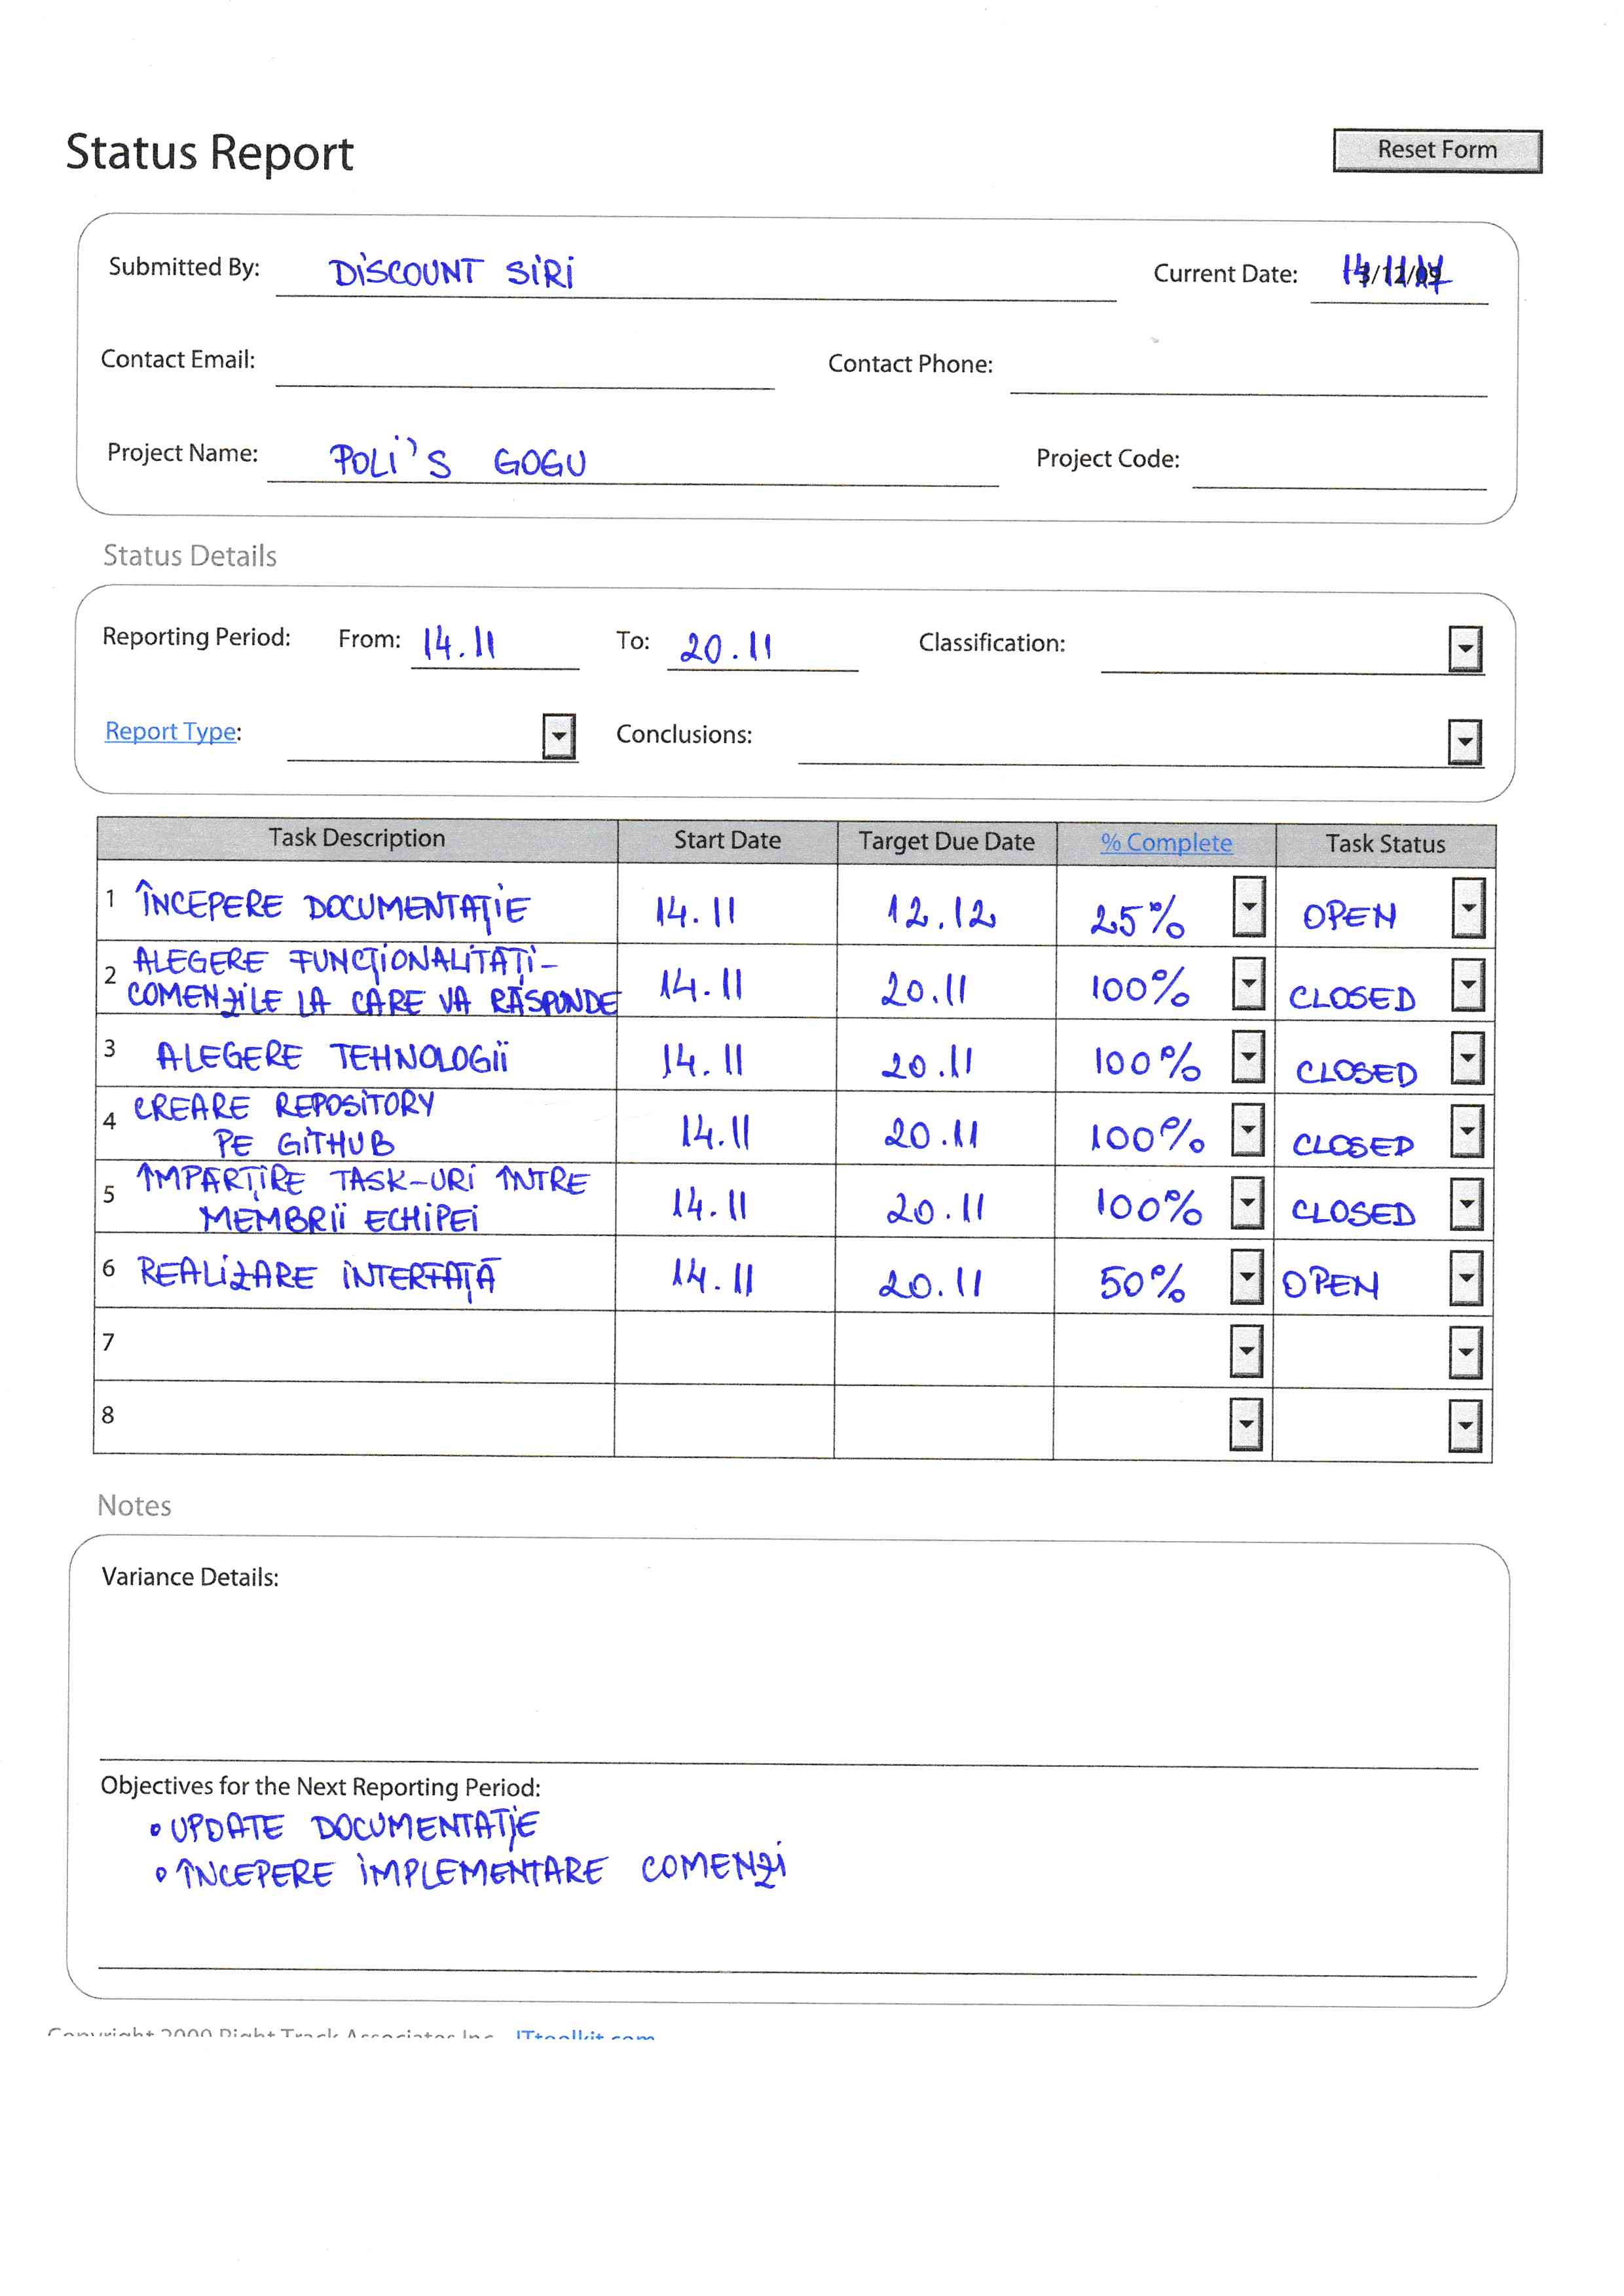 Status Report
Reset Form
Submitted By: DISCOUNT SIRI Current Date:
Contact Email: Contact Phone:
Project Name: POLI'S GOGU Project Code:
Status Details
Reporting Period: From: 14.11 To: 20.11 Classification:
Report Type: Conclusions:
Task Description Start Date Target Due Date % Complete Task Status
1 ÎNCEPERE DOCUMENTAȚIE 14.11 12.12 25% OPEN
2 ALEGERE FUNCȚIONALITĂȚI-
COMENZILE LA CARE VA RĂSPUNDE 14.11 20.11 100% CLOSED
3 ALEGERE TEHNOLOGII 14.11 20.11 100% CLOSED
4 CREARE REPOSITORY
PE GITHUB 14.11 20.11 100% CLOSED
5 ÎMPĂRȚIRE TASK-URI ÎNTRE
MEMBRII ECHIPEI 14.11 20.11 100% CLOSED
6 REALIZARE INTERFAȚĂ 14.11 20.11 50% OPEN
7
8
Notes
Variance Details:
Objectives for the Next Reporting Period:
• UPDATE DOCUMENTAȚIE
• ÎNCEPERE IMPLEMENTARE COMENZI
Copyright 2009 Right Track Associates Inc. ITtoolkit.com